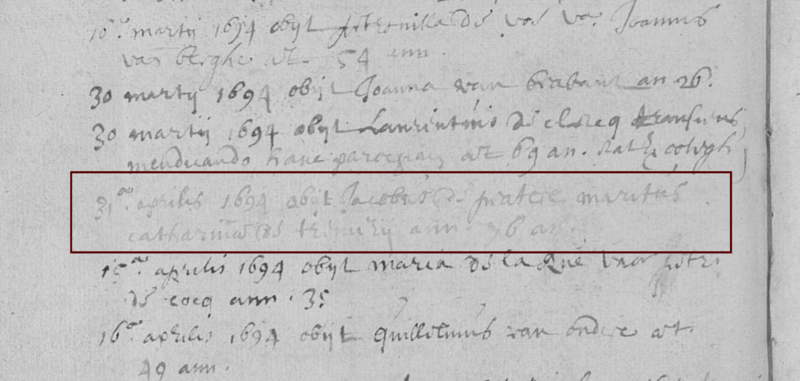 10 martij 1694 obijt petronilla de vos uxor Joannis
van berghe æt. 54 ann.
30 martij 1694 obijt Joanna van brabant an 26.
30 martij 1694 obijt Laurentius de clercq
mendicando hanc parochiam æt 69 an.
aprilis 1694 obijt Jacobus de pratere maritus
ann. 76 an.
15 aprilis 1694 obijt maria de la Rue uxor petri
de cocq ann. 35
16 aprilis 1694 obijt Guillelmus van æt.
49 ann.